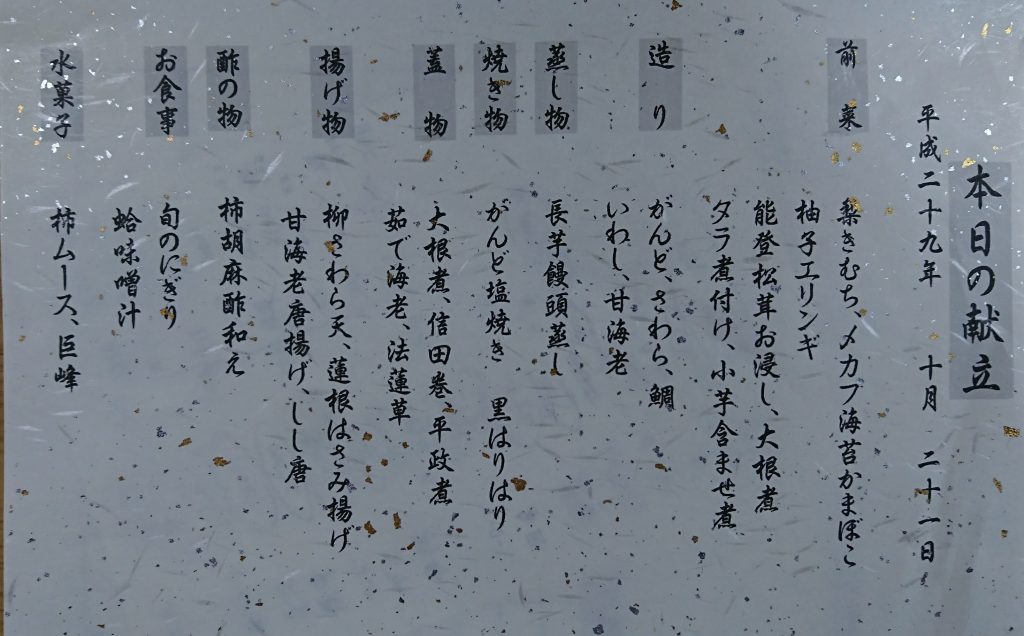 本日の献立
平成二十九年 十月 二十一日
前菜
梨きむち、メカブ海苔かまぼこ
柚子エリンギ
能登松茸お浸し、大根煮
タラ煮付け、小芋含ませ煮
造り
がんど、さわら、鯛
いわし、甘海老
蒸し物
長芋饅頭蒸し
焼き物
がんど塩焼き 黒はりはり
蓋物
大根煮、信田巻、平政煮
茹で海老、法蓮草
揚げ物
柳さわら天、蓮根はさみ揚げ
甘海老唐揚げ、しし唐
酢の物
柿胡麻酢和え
お食事
旬のにぎり
蛤味噌汁
水菓子
柿ムース、巨峰